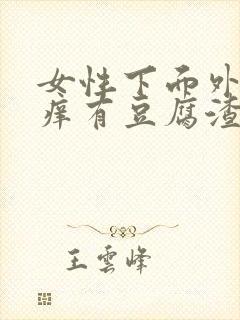 女性下面外
痒有豆腐渣
王雲峰